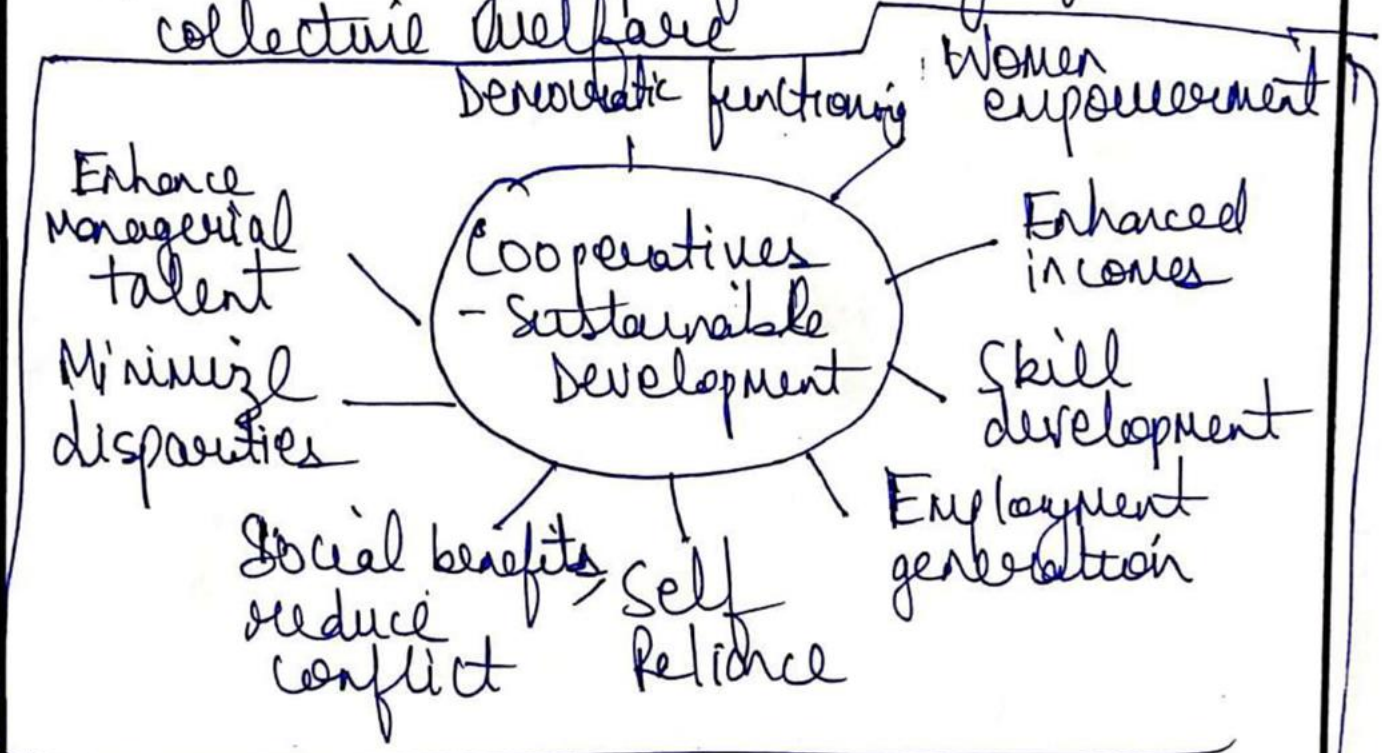 collective welfare
Democratic functioning
Women
empowerment
Enhance
Managerial
talent
Cooperatives
- Sustainable
Development
Enhanced
incomes
Minimize
disparities
Skill
development
Social benefits,
reduce
conflict
Self
Reliance
Employment
generation